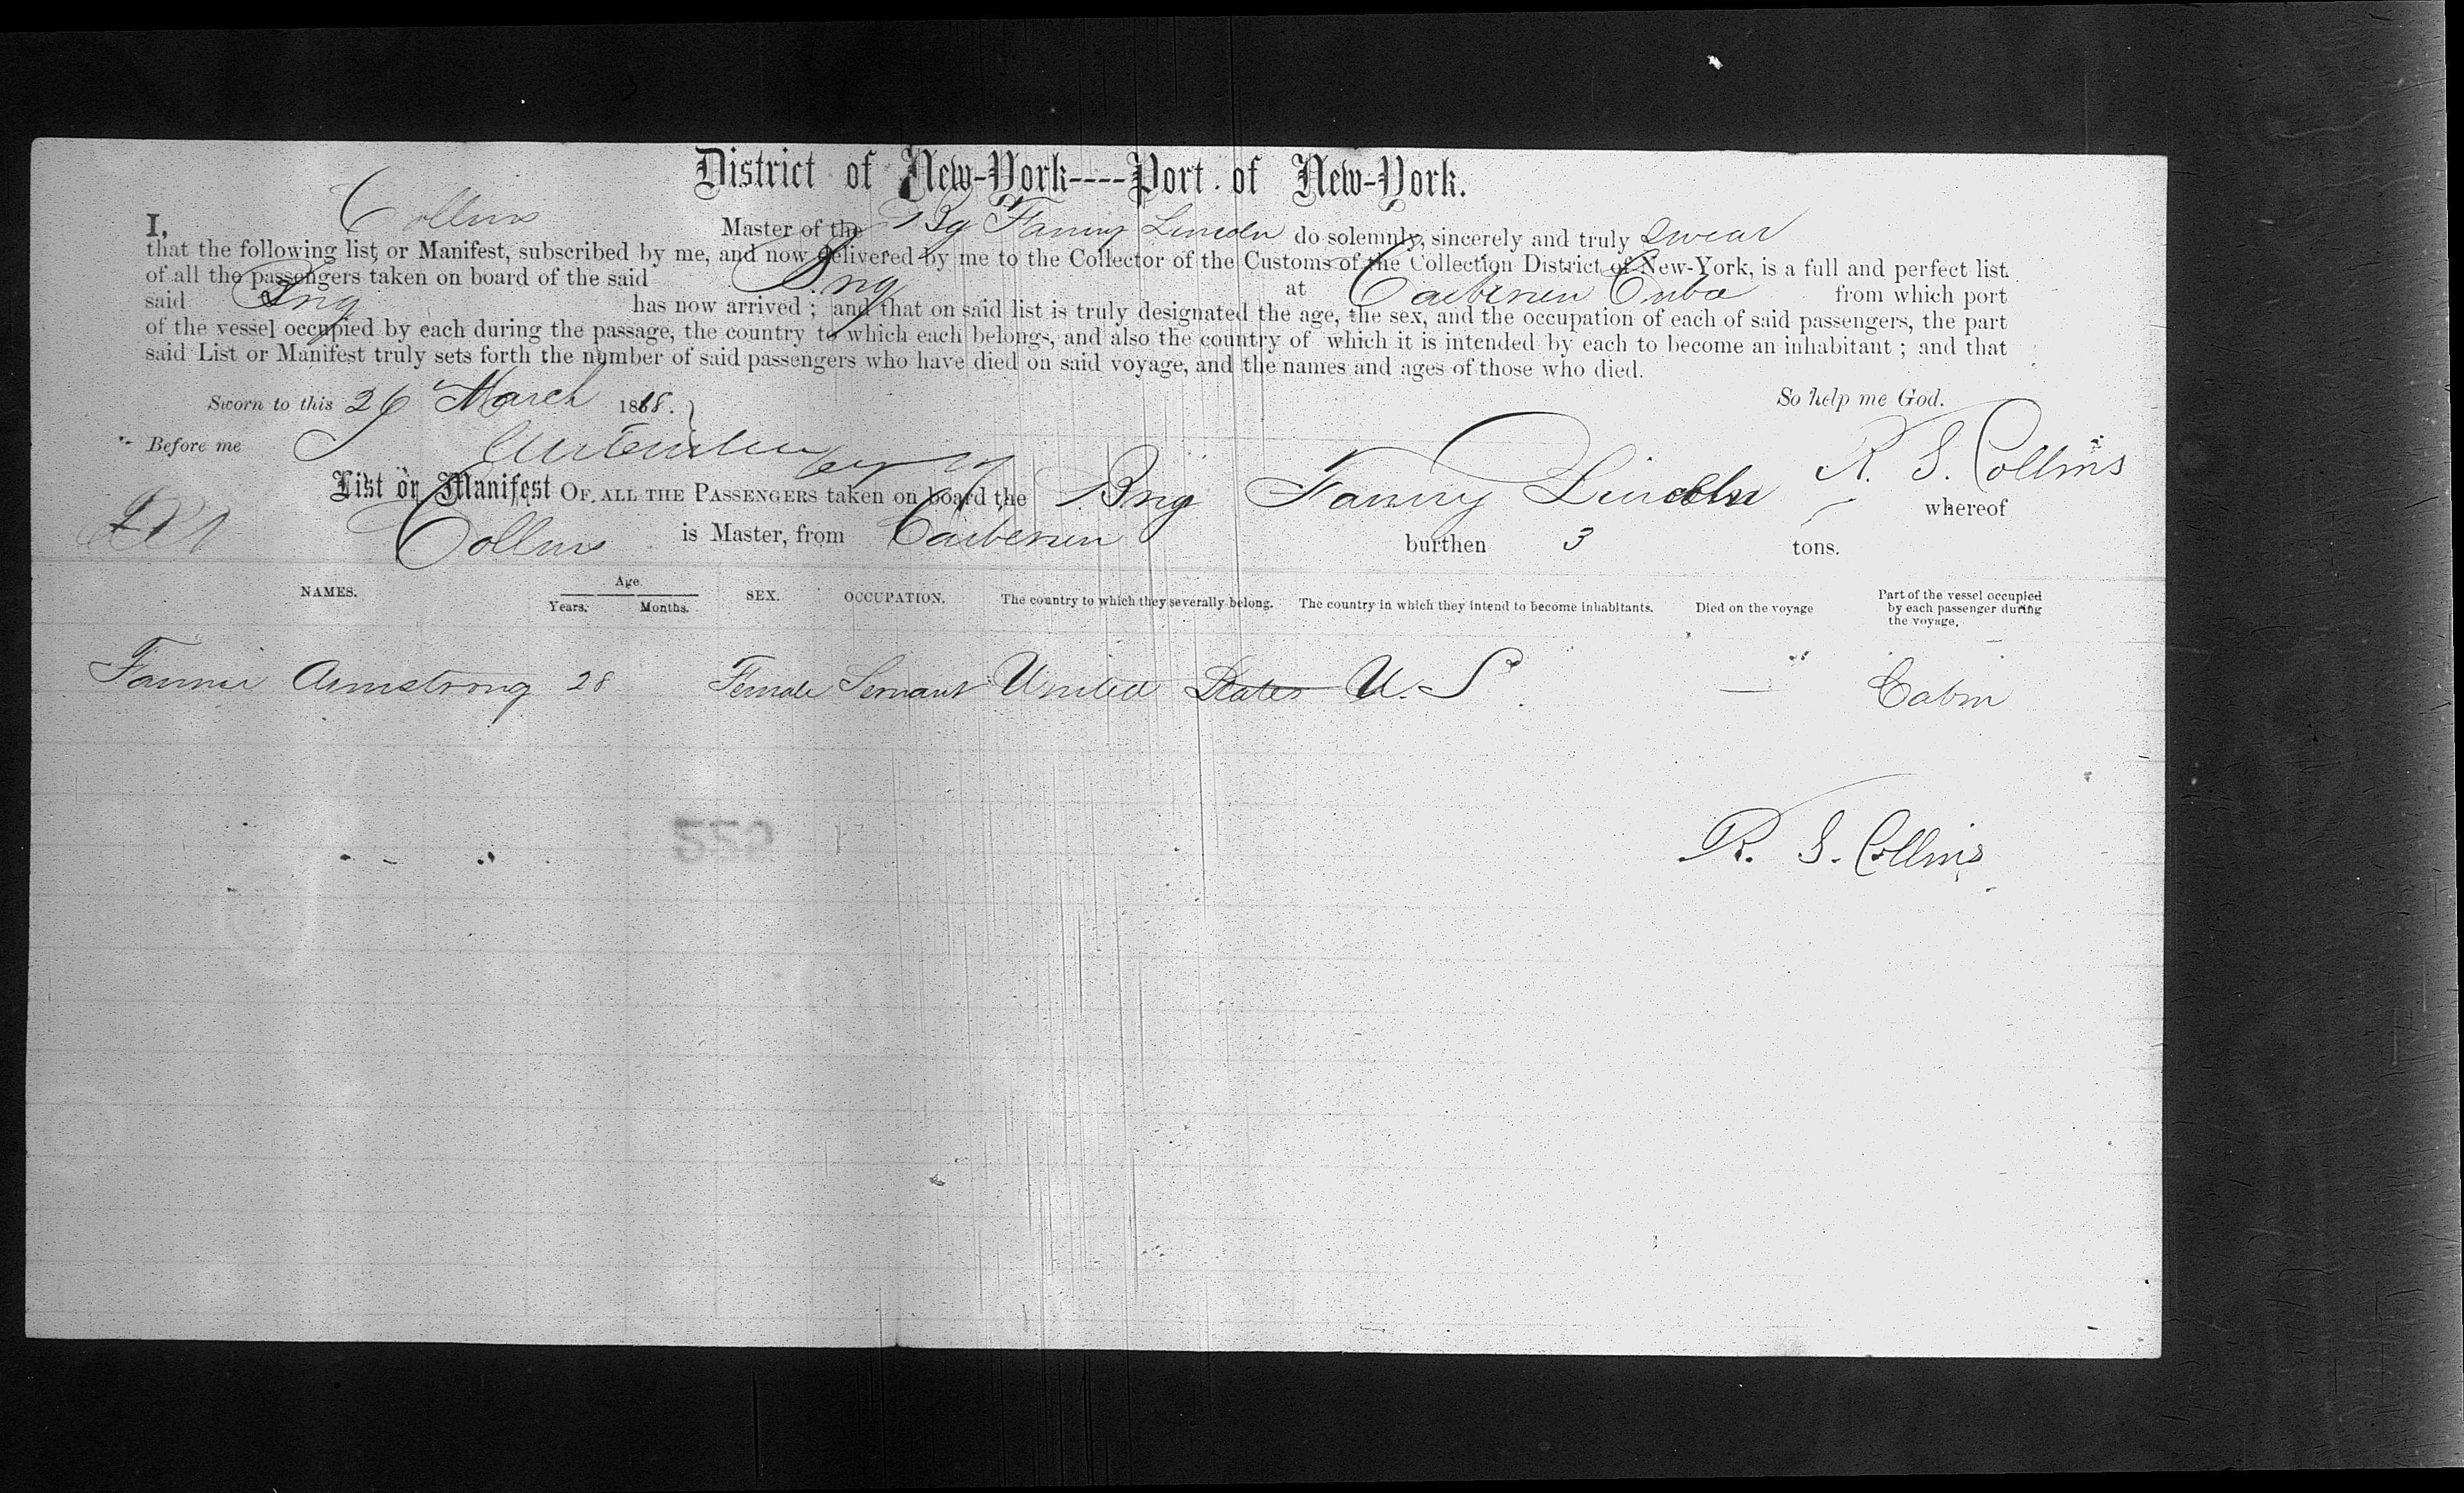 District of New-York----Port of New-York.
I, Collins Master of the Bg Fanny Lincoln do solemnly, sincerely and truly swear
that the following list or Manifest, subscribed by me, and now delivered by me to the Collector of the Customs of the Collection District of New-York, is a full and perfect list
of all the passengers taken on board of the said Brig at Caibarien Cuba from which port
said Brig has now arrived; and that on said list is truly designated the age, the sex, and the occupation of each of said passengers, the part
of the vessel occupied by each during the passage, the country to which each belongs, and also the country of which it is intended by each to become an inhabitant; and that
said List or Manifest truly sets forth the number of said passengers who have died on said voyage, and the names and ages of those who died.
Sworn to this 26 March 1868. So help me God.
Before me R. S. Collins
List or Manifest OF ALL THE PASSENGERS taken on board the Brig Fanny Lincoln whereof
Collins is Master, from Caibarien burthen 3 tons.
NAMES. Age. Years. Months. SEX. OCCUPATION. The country to which they severally belong. The country in which they intend to become inhabitants. Died on the voyage Part of the vessel occupied by each passenger during the voyage.
Fannie Armstrong 28 Female Servant United States U. S. — Cabin
R. S. Collins